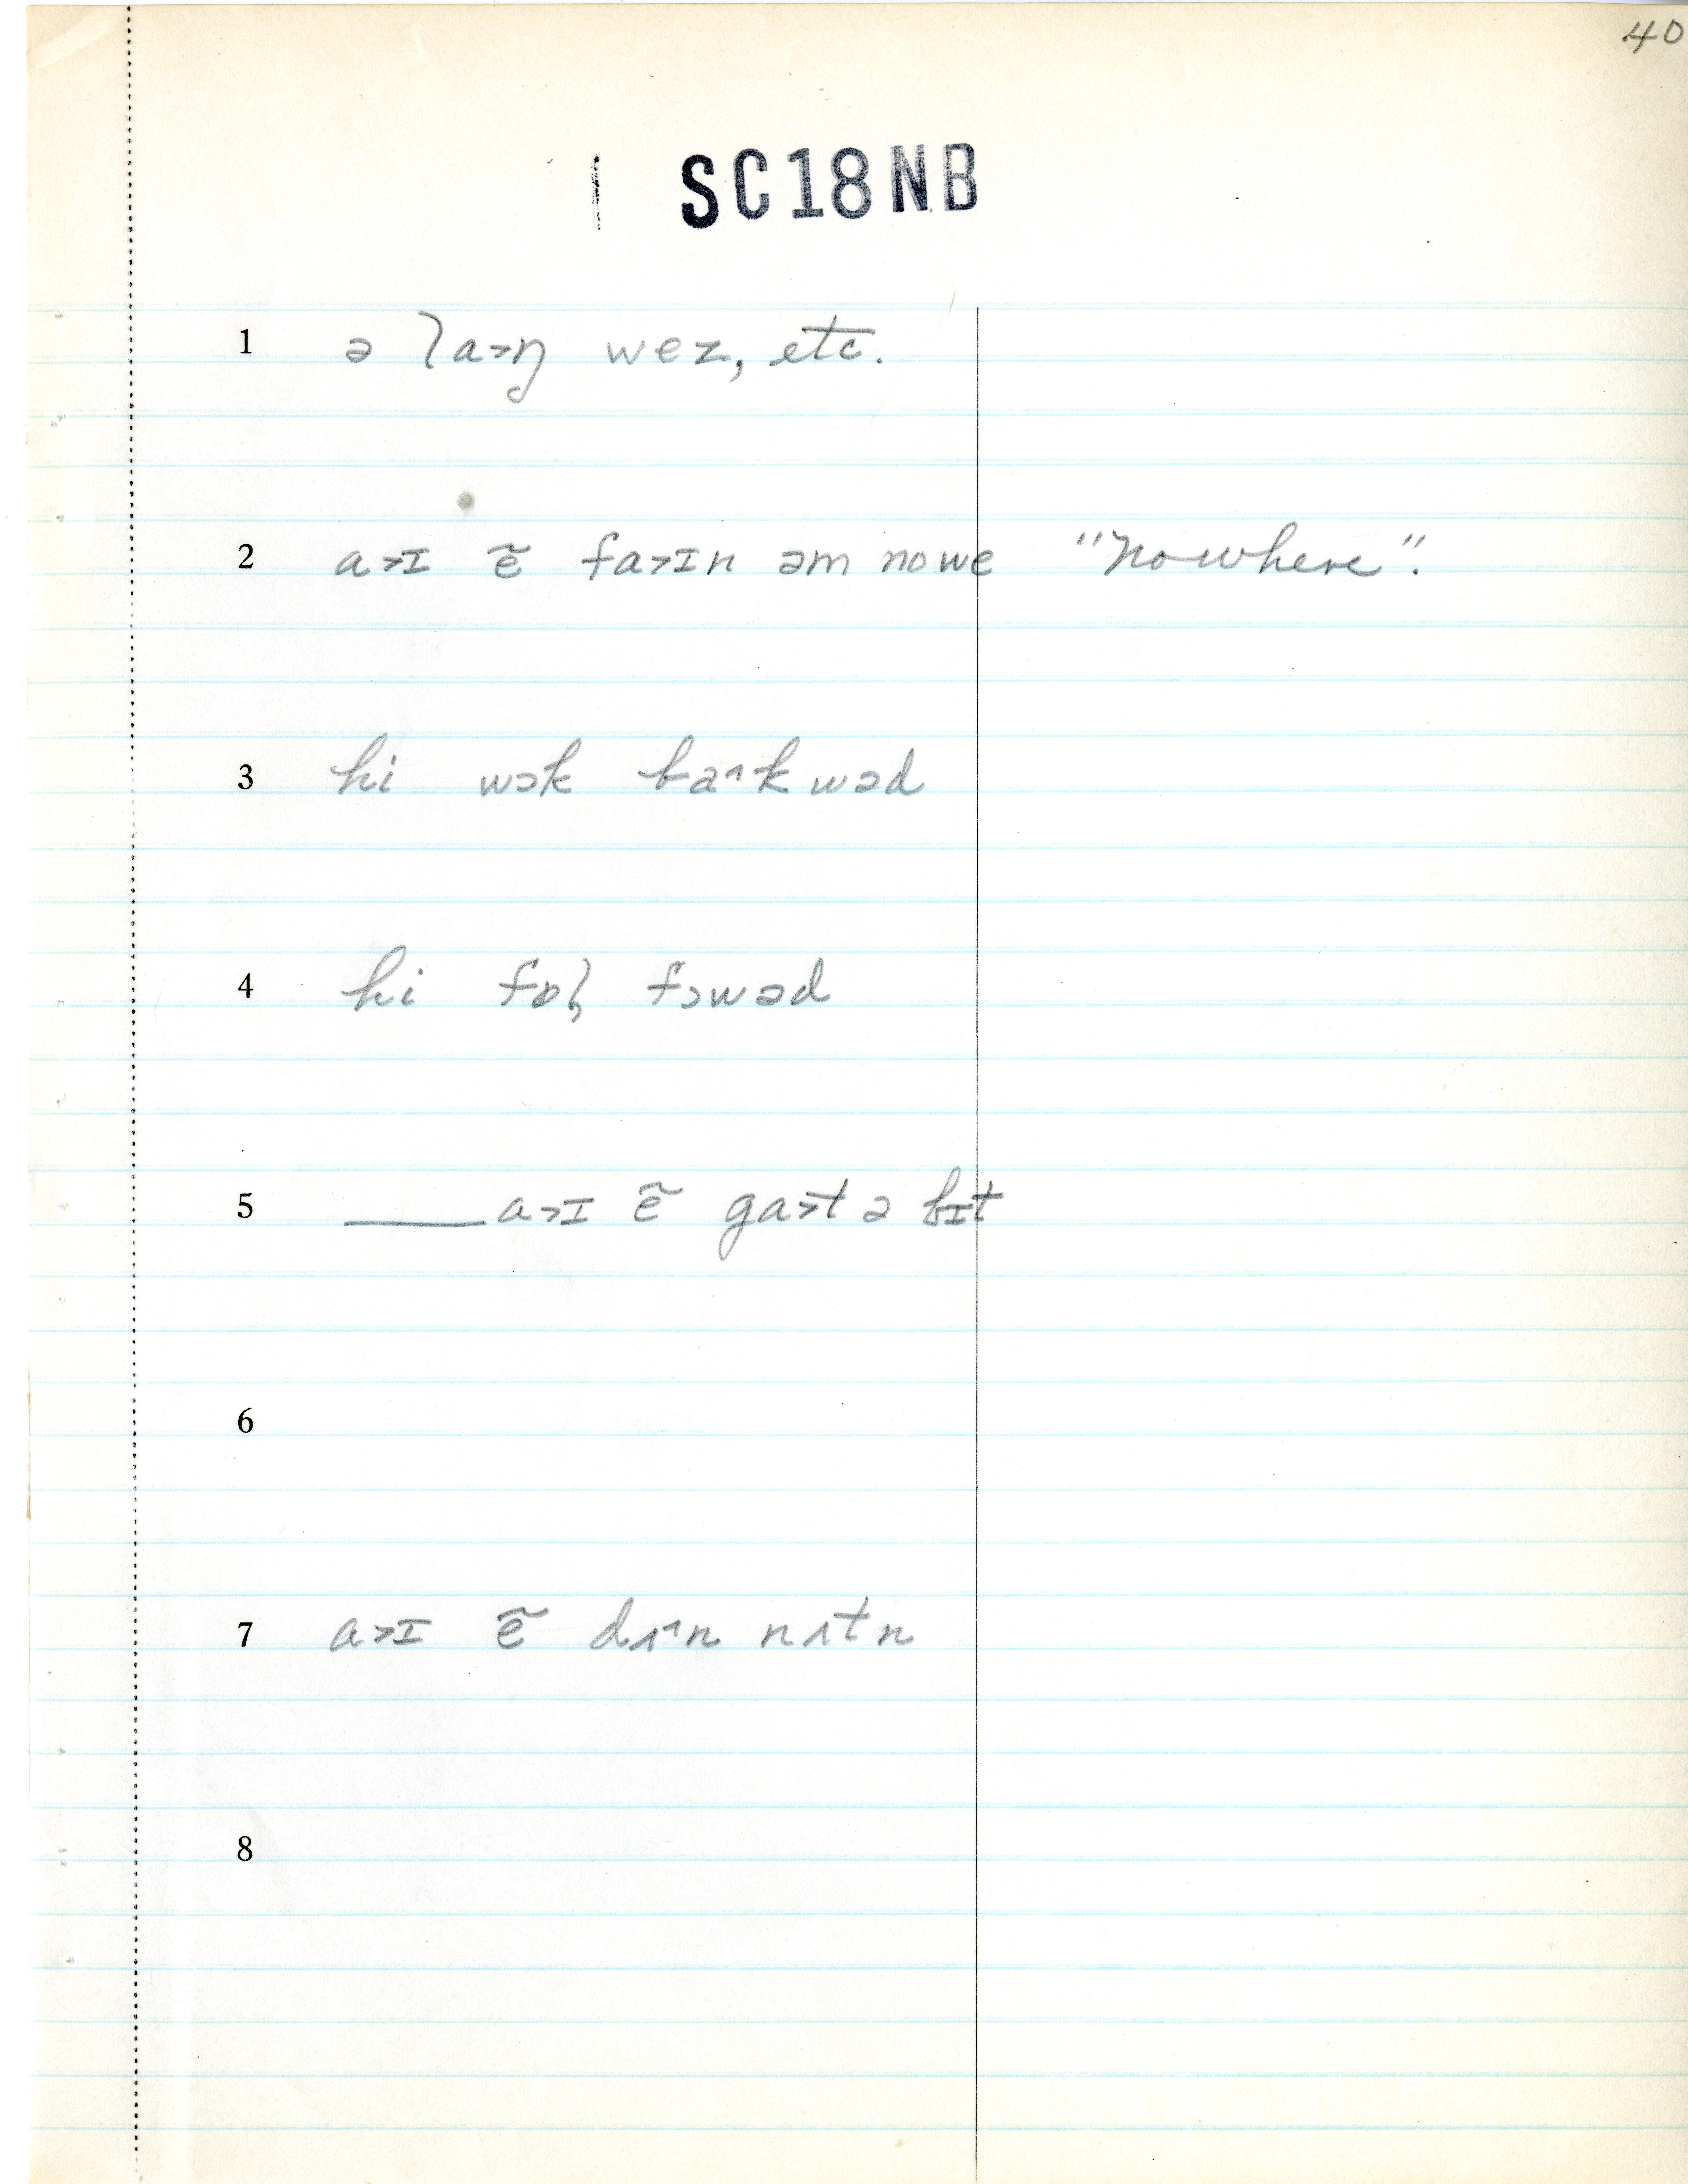 40
SC18NB
1 ə la˃ŋ wez, etc.
2 a˃ɪ ẽ fa˃ɪn əm nowe "nowhere".
3 hi wɔk ba˄kwəd
4 hi fɒl̥ fɔwəd
5 ____ a˃ɪ ẽ ga˃t ə bɪt
6
7 a˃ɪ ẽ dʌ˄n nʌtn
8